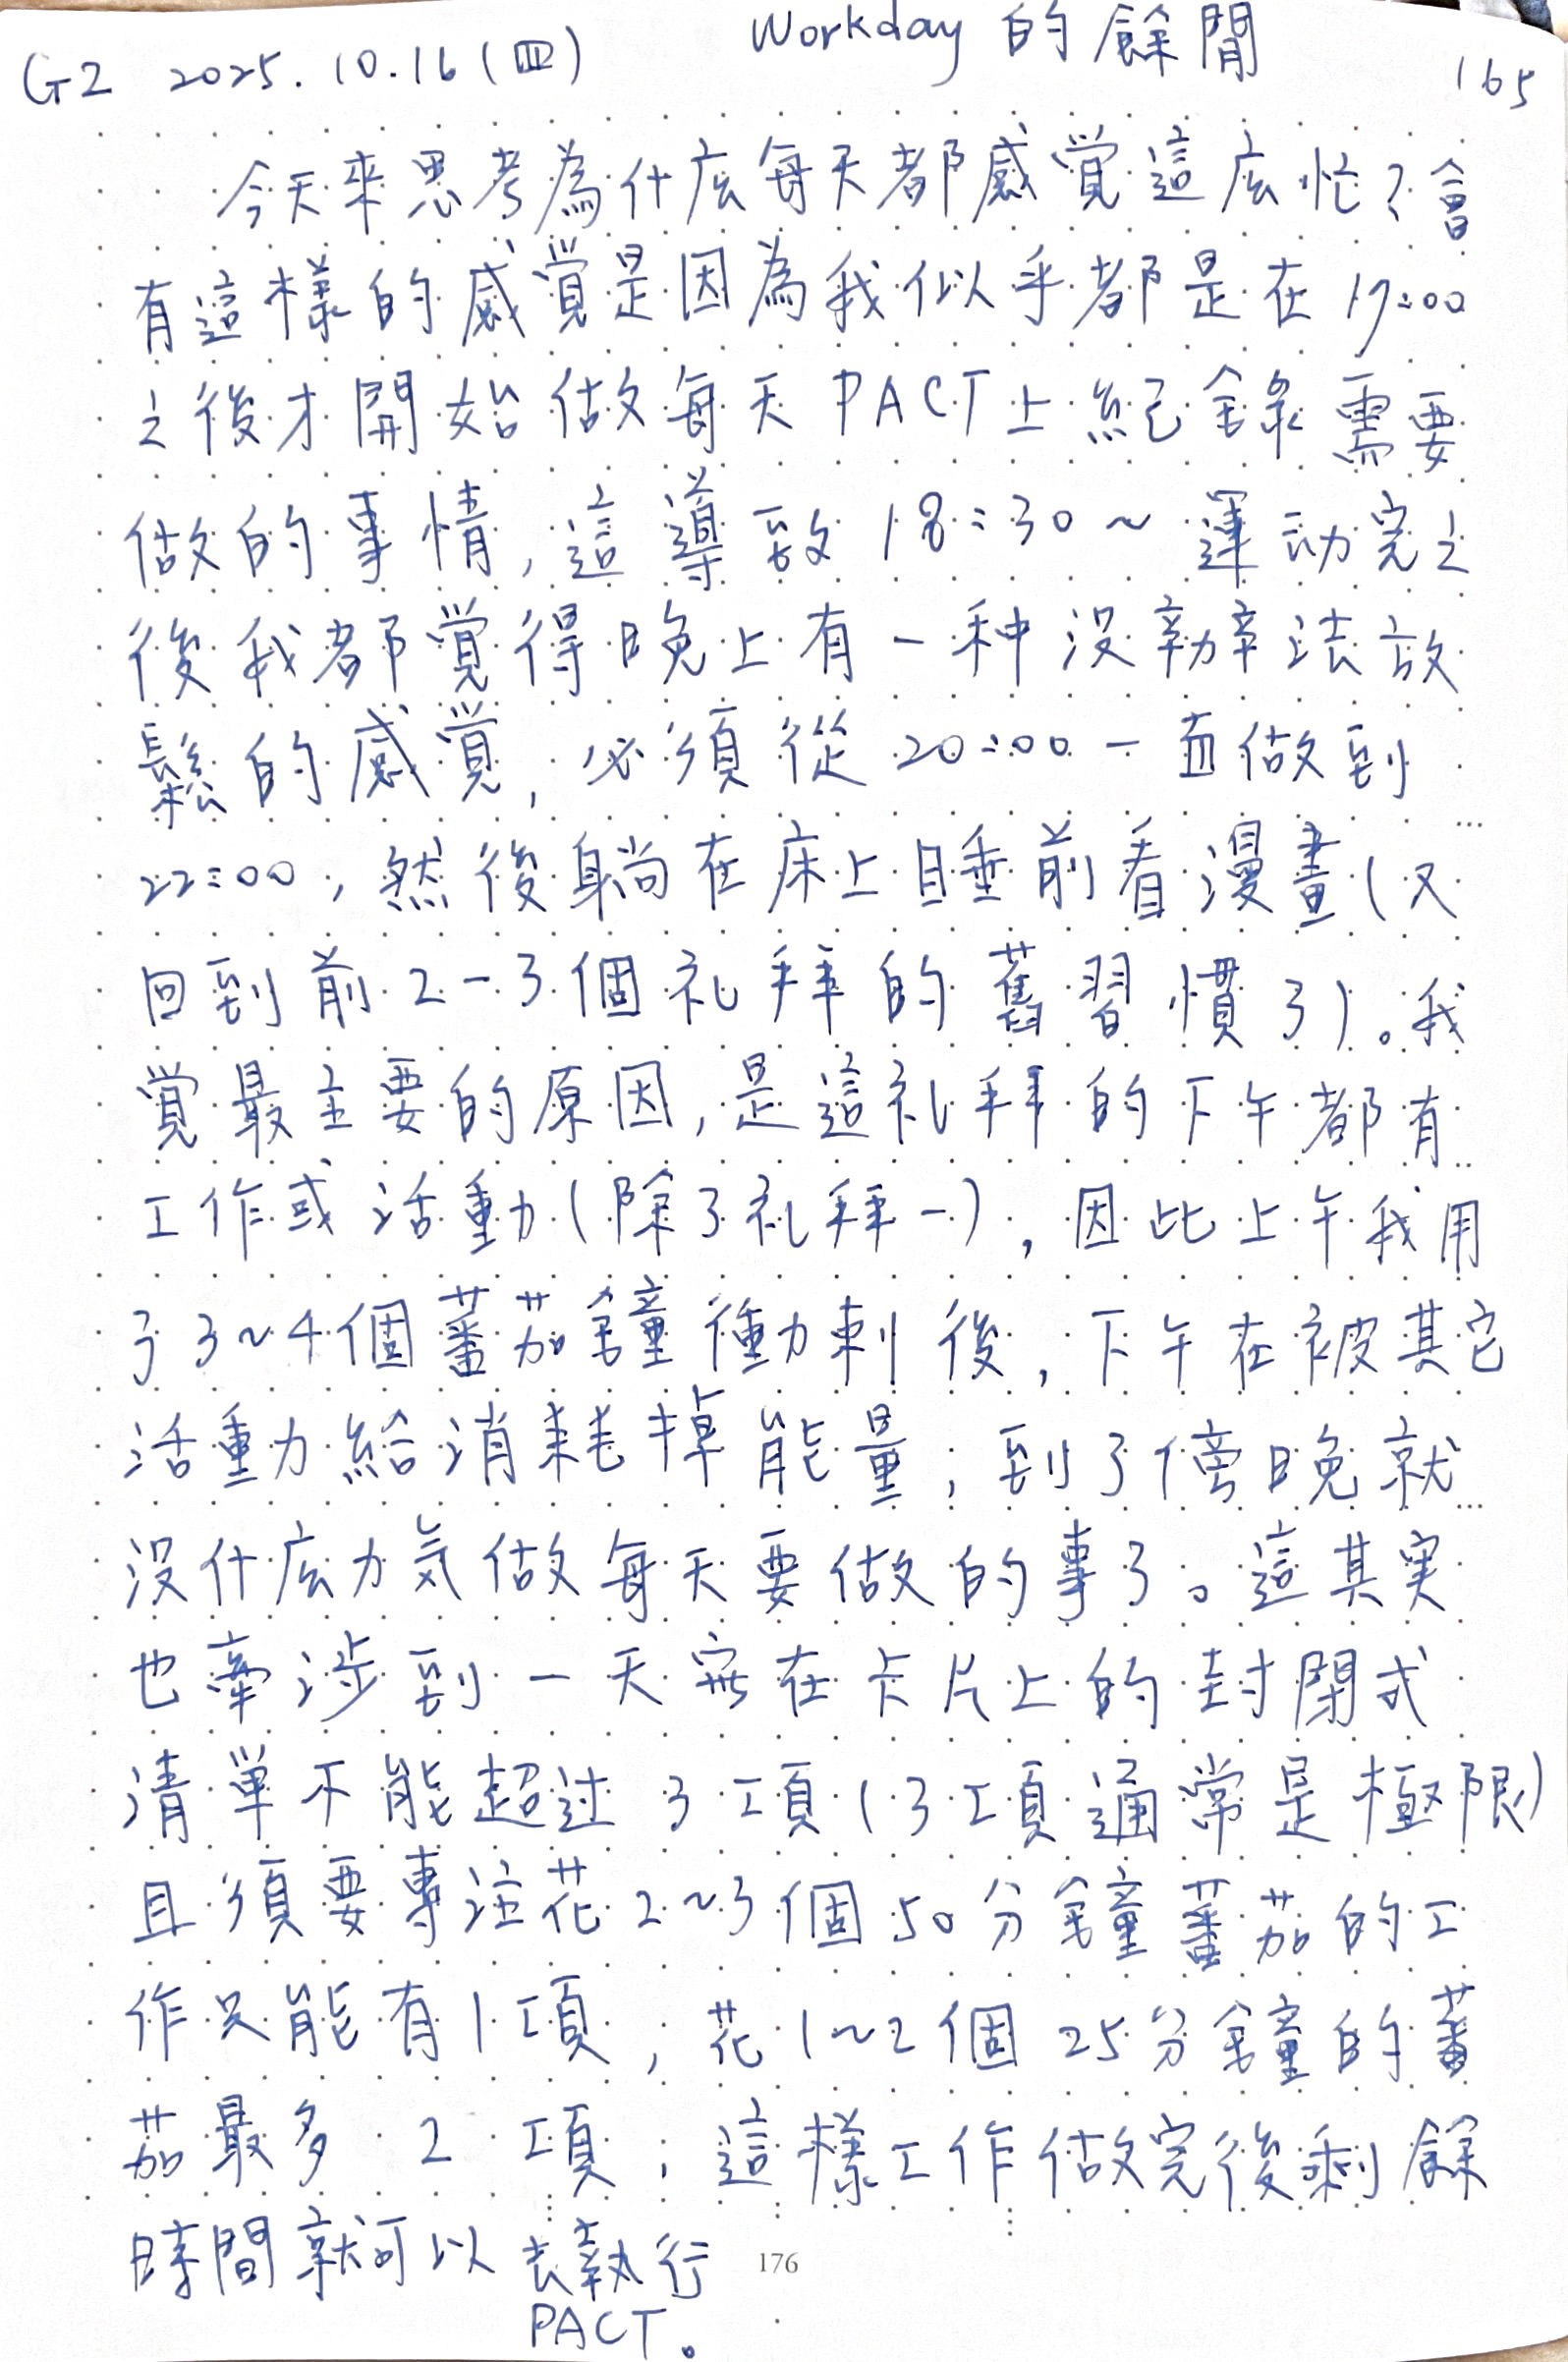 G2 2025.10.16(四) Workday 的餘閒 165
今天來思考為什広每天都感覚這広忙?會
有這樣的感覚是因為我似乎都是在17:00
之後才開始做每天PACT上紀錄需要
做的事情,這導致18:30~運动完之
後我都覚得晚上有一种沒辦法放
鬆的感覚,必須從20:00一直做到
22:00,然後躺在床上睡前看漫畫(又
回到前2-3個礼拜的舊習慣了)。我
覚最主要的原因,是這礼拜的下午都有
工作或活動(除了礼拜一),因此上午我用
了3~4個蕃茄鐘衝刺後,下午在被其它
活動給消耗掉能量,到了傍晚就
沒什広力気做每天要做的事了。這其実
也牽涉到一天寫在卡片上的封閉式
清単不能超过3項(3項通常是極限)
且須要專注花2~3個50分鐘蕃茄的工
作只能有1項,花1~2個25分鐘的蕃
茄最多2項,這樣工作做完後剩餘
時間就可以去執行
PACT。
176